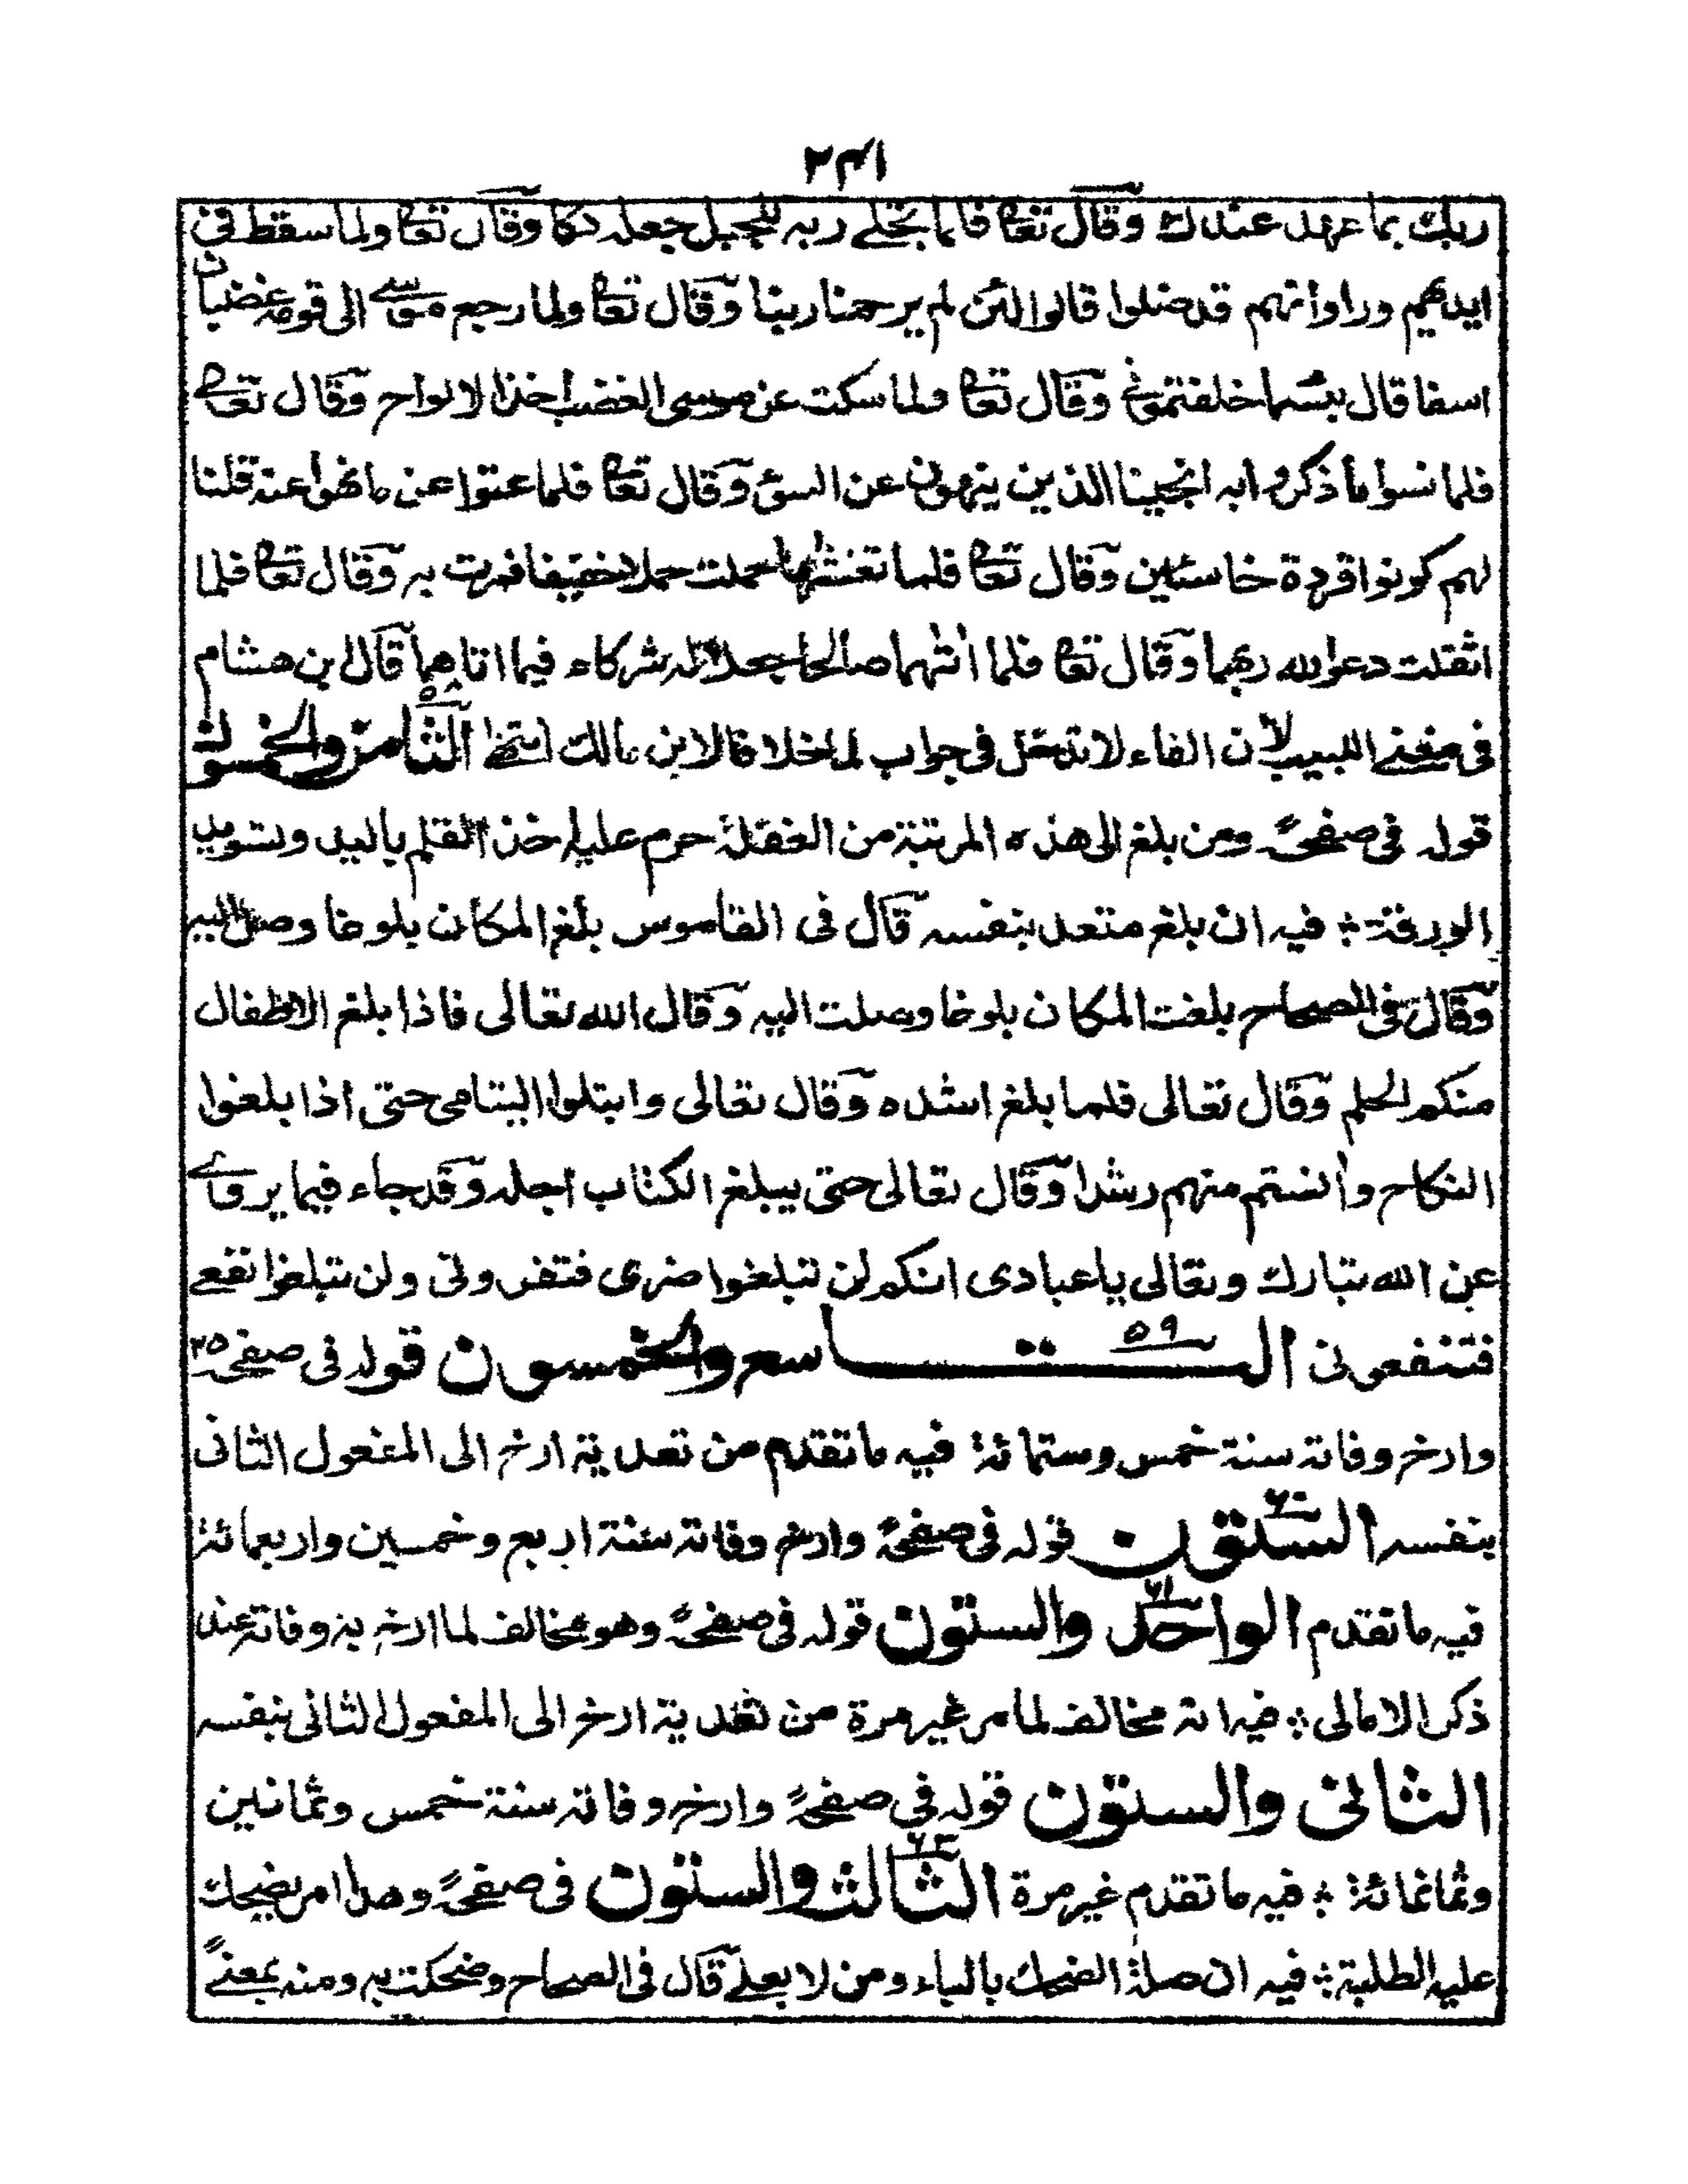 ٢٤١
ربك بما عهد عندك وقال تعا فلما تجلے ربه للجبل جعله دكا وقال تعا ولما سقط في
ايديهم وراوا انهم قد ضلوا قالوا لئن لم يرحمنا ربنا وقال تعا ولما رجع موسے الى قومه غضبان
اسفا قال بئسما خلفتموني وقال تعا ولما سكت عن موسى الغضب اخذ الالواح وقال تعالے
فلما نسوا ما ذكروا به انجينا الذين ينهون عن السوء وقال تعا فلما عتوا عن ما نهوا عنه قلنا
لهم كونوا قردة خاسئين وقال تعا فلما تغشٰها حملت حملا خفيفا فمرت به وقال تعا فلما
اثقلت دعوا الله ربهما وقال تعا فلما اٰتٰهما صالحا جعلا له شركاء فيما اتاهما قال ابن هشام
في مغنے اللبيب لان الفاء لا تدخل في جواب لما خلافا لابن مالك انتهى الثامن والخمسون ٥٨
قوله في صفحة ومن بلغ الى هذه المرتبة من الغفلة حرم عليه اخذ القلم باليد وتسويد
الورقة ؞ فيه ان بلغ متعد بنفسه قال في القاموس بلغ المكان بلوغا وصل اليه
وقال في الصحاح بلغت المكان بلوغا وصلت اليه وقال الله تعالى فاذا بلغ الاطفال
منكم الحلم وقال تعالى فلما بلغ اشده وقال تعالى وابتلوا اليتامى حتى اذا بلغوا
النكاح واٰنستم منهم رشدا وقال تعالى حتى يبلغ الكتاب اجله وقد جاء فيما يروے
عن الله تبارك وتعالى يا عبادى انكم لن تبلغوا ضرى فتضرونى ولن تبلغوا نفعے
فتنفعونى التاسع والخمسون ٥٩ قوله في صفحة ٣٥
وارخ وفاته سنة خمس وستمائة فيه ما تقدم من تعدية ارخ الى المفعول الثانى
بنفسه الستون ٦٠ قوله في صفحة وارخ وفاته سنة اربع وخمسين واربعمائة
فيه ما تقدم الواحد والستون ٦١ قوله في صفحة وهو مخالف لما ارخ به وفاته عند
ذكر الامالى ؞ فيه انه مخالف لما مر غير مرة من تعدية ارخ الى المفعول الثانى بنفسه
الثانى والستون قوله في صفحة وارخ وفاته سنة خمس وثمانين
وثمانمائة ؞ فيه ما تقدم غير مرة الثالث والستون ٦٣ في صفحة وهذا امر يضحك
عليه الطلبة ؞ فيه ان صلة الضحك بالباء ومن لا بعلے قال في الصحاح وضحكت به ومنه بمعنےً